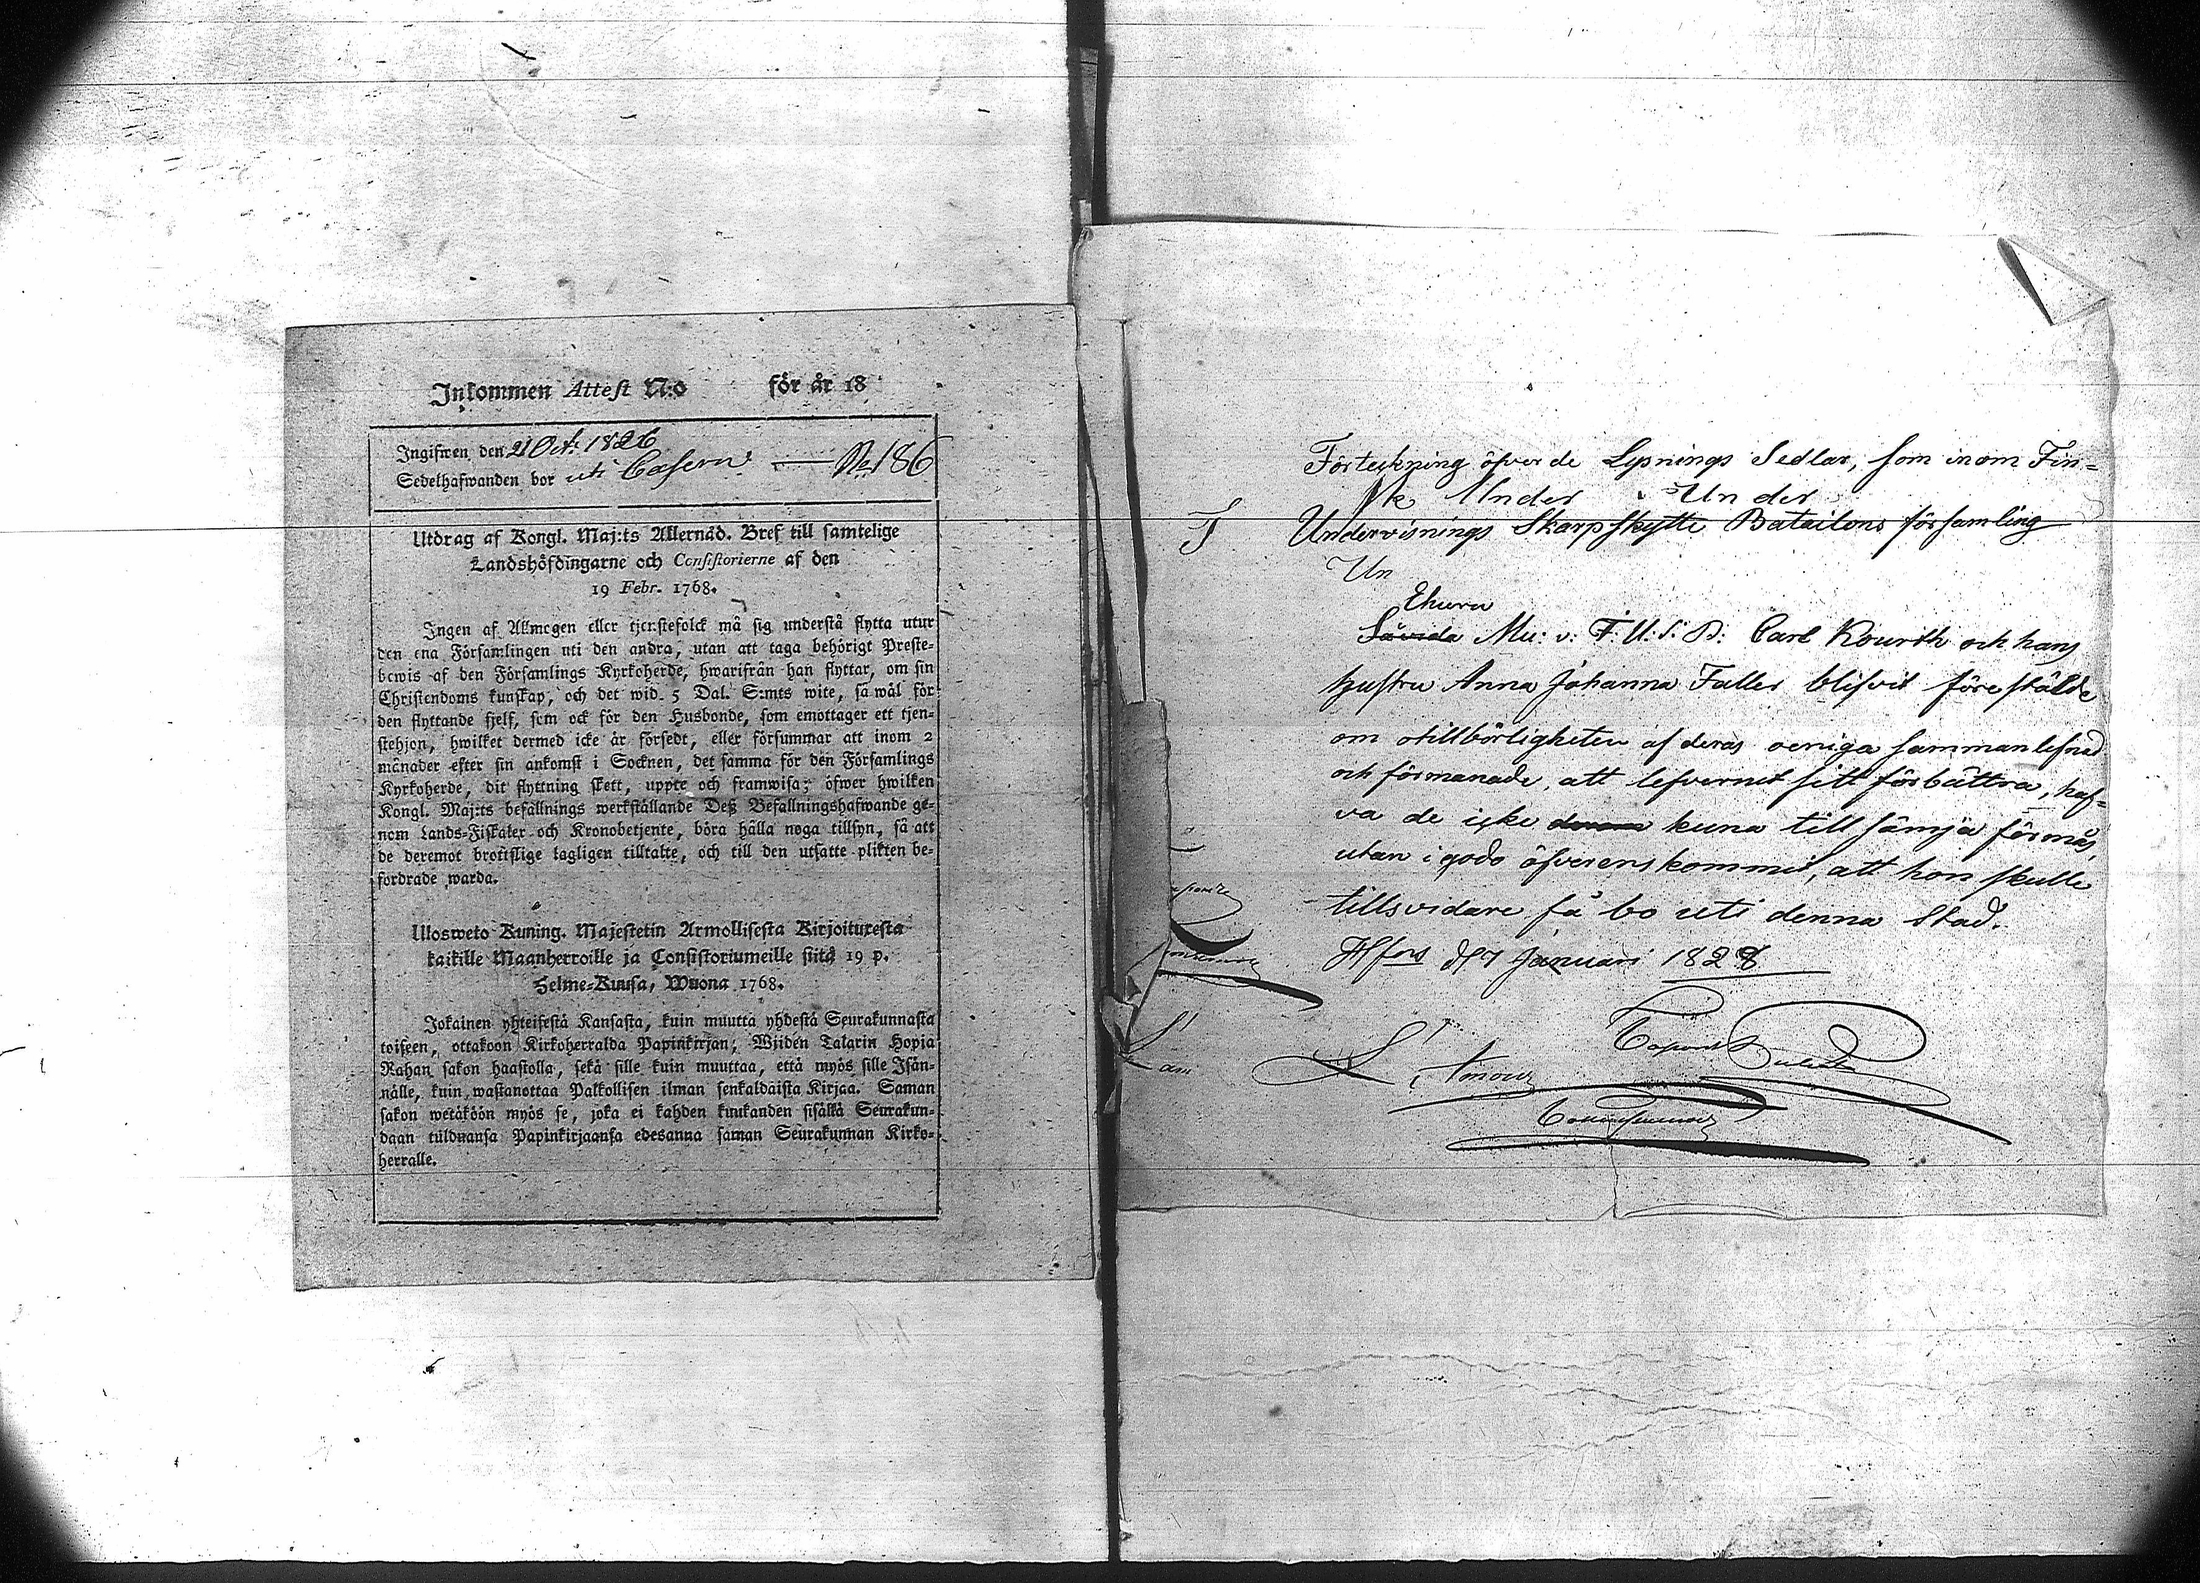 Inkommen Attest N:o för år 18
Ingifwen den 21 Oct. 1826
Sedelhafwanden bor uti Casern. — No 186
Utdrag af Kongl. Maj:ts Allernåd. Bref till samtelige
Landshöfdingarne och Consistorierne af den
19 Febr. 1768.
Ingen af Allmogen eller tjenstefolck må sig understå flytta utur
den ena Församlingen uti den andra, utan att taga behörigt Preste-
bewis af den Församlings Kyrkoherde, hwarifrån han flyttar, om sin
Christendoms kunskap, och det wid 5 Dal. S:mts wite, så wäl för
den flyttande sjelf, som ock för den Husbonde, som emottager ett tjen-
stehjon, hwilket dermed icke är försedt, eller försummar att inom 2
månader efter sin ankomst i Socknen, det samma för den Församlings
Kyrkoherde, dit flyttning skett, uppte och framwisa; öfwer hwilken
Kongl. Maj:ts befallnings werkställande Deß Befallningshafwande ge-
nom Lands-Fiskaler och Kronobetjente, böra hålla noga tillsyn, så att
de deremot brottslige lagligen tilltalte, och till den utsatte plikten be-
fordrade warda.
Ulosweto Kuning. Majestetin Armollisesta Kirjoituxesta
kaikille Maanherroille ja Consistoriumeille siitä 19 p.
Helme-Kuusa, Wuona 1768.
Jokainen yhteisestä Kansasta, kuin muuttä yhdestä Seurakunnasta
toiseen, ottakoon Kirkoherralda Papinkirjan; Wjiden Talarin Hopia
Rahan sakon haastolla, sekä sille kuin muuttaa, että myös sille Isän-
nälle, kuin wastanottaa Palkollisen ilman senkaldaista Kirjaa. Saman
sakon wetäköön myös se, joka ei kahden kuukauden sisällä Seurakun-
daan tulduansa Papinkirjaansa edesanna saman Seurakunnan Kirko-
herralle.
Förteckning öfver de Lysnings Sedlar, som inom Fin-
sk Under Under
Undervisnings Skarpskytte Batailons församling
Un
Ehuru
Såvida Mu: v: F: U: S: B: Carl Kourth och hans
hustru Anna Johanna Faller blifvit föreställde
om otillbörligheten af deras oeniga sammanlefnad
och förmanade, att lefvernet sitt förbättra, haf-
va de icke kuna till sämja förmås,
utan i godo öfverenskommit, att hon skulle
tillsvidare få bo uti denna Stad.
Hfors d 7 Januari 1828